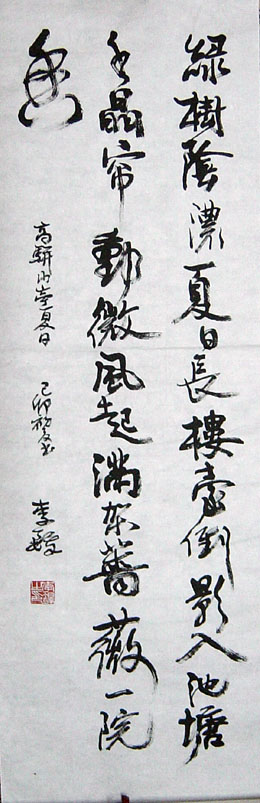 綠樹陰濃夏日長樓臺倒影入池塘
水晶帘動微風起滿架薔薇一院
香
高駢山亭夏日
己卯初夏書
李